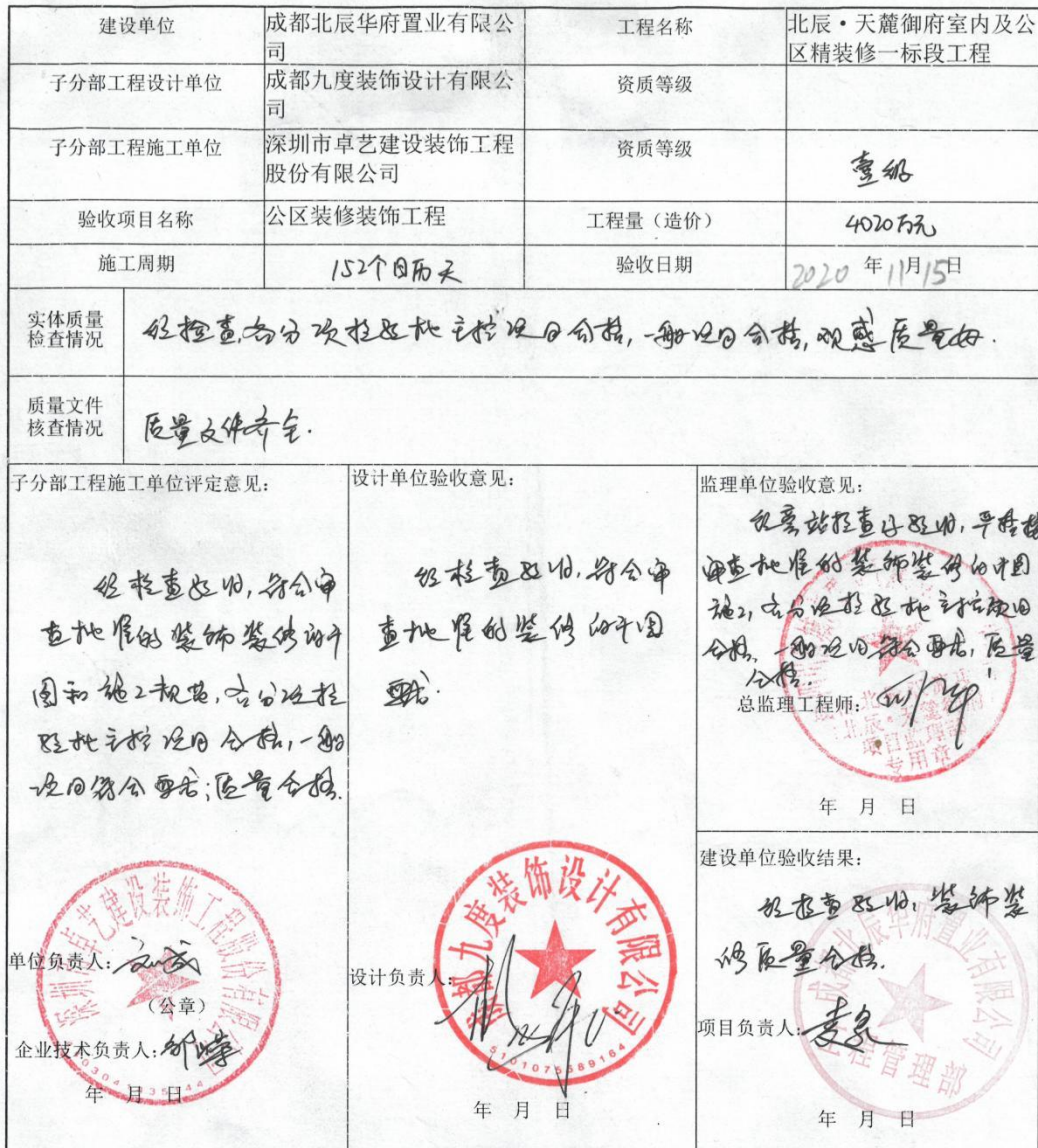 建设单位
成都北辰华府置业有限公
司
工程名称
北辰·天麓御府室内及公
区精装修一标段工程
子分部工程设计单位
成都九度装饰设计有限公
司
资质等级
子分部工程施工单位
深圳市卓艺建设装饰工程
股份有限公司
资质等级
壹级
验收项目名称
公区装修装饰工程
工程量（造价）
4020万元
施工周期
152个日历天
验收日期
2020 年 11月 15日
实体质量
检查情况
经检查,各分项检验批主控项目合格,一般项目合格,观感质量好.
质量文件
核查情况
质量文件齐全.
子分部工程施工单位评定意见：
经检查验收,符合审
查批准的装饰装修设计
图和施工规范,各分项检
验批主控项目合格,一般
项目符合要求;质量合格.
深圳市卓艺建设装饰工程股份有限公司
单位负责人：
（公章）
企业技术负责人：
年 月 日
设计单位验收意见：
经检查验收,符合审
查批准的装修设计图
要求.
成都九度装饰设计有限公司
设计负责人：
5101075589164
年 月 日
监理单位验收意见：
经旁站检查及验收,严格按
审查批准的装饰装修设计图
施工,各分项检验批主控项目
合格,一般项目符合要求,质量
合格.
总监理工程师：
项目监理部
专用章
年 月 日
建设单位验收结果：
经检查验收,装饰装
修质量合格.
成都北辰华府置业有限公司
项目负责人：
工程管理部
年 月 日